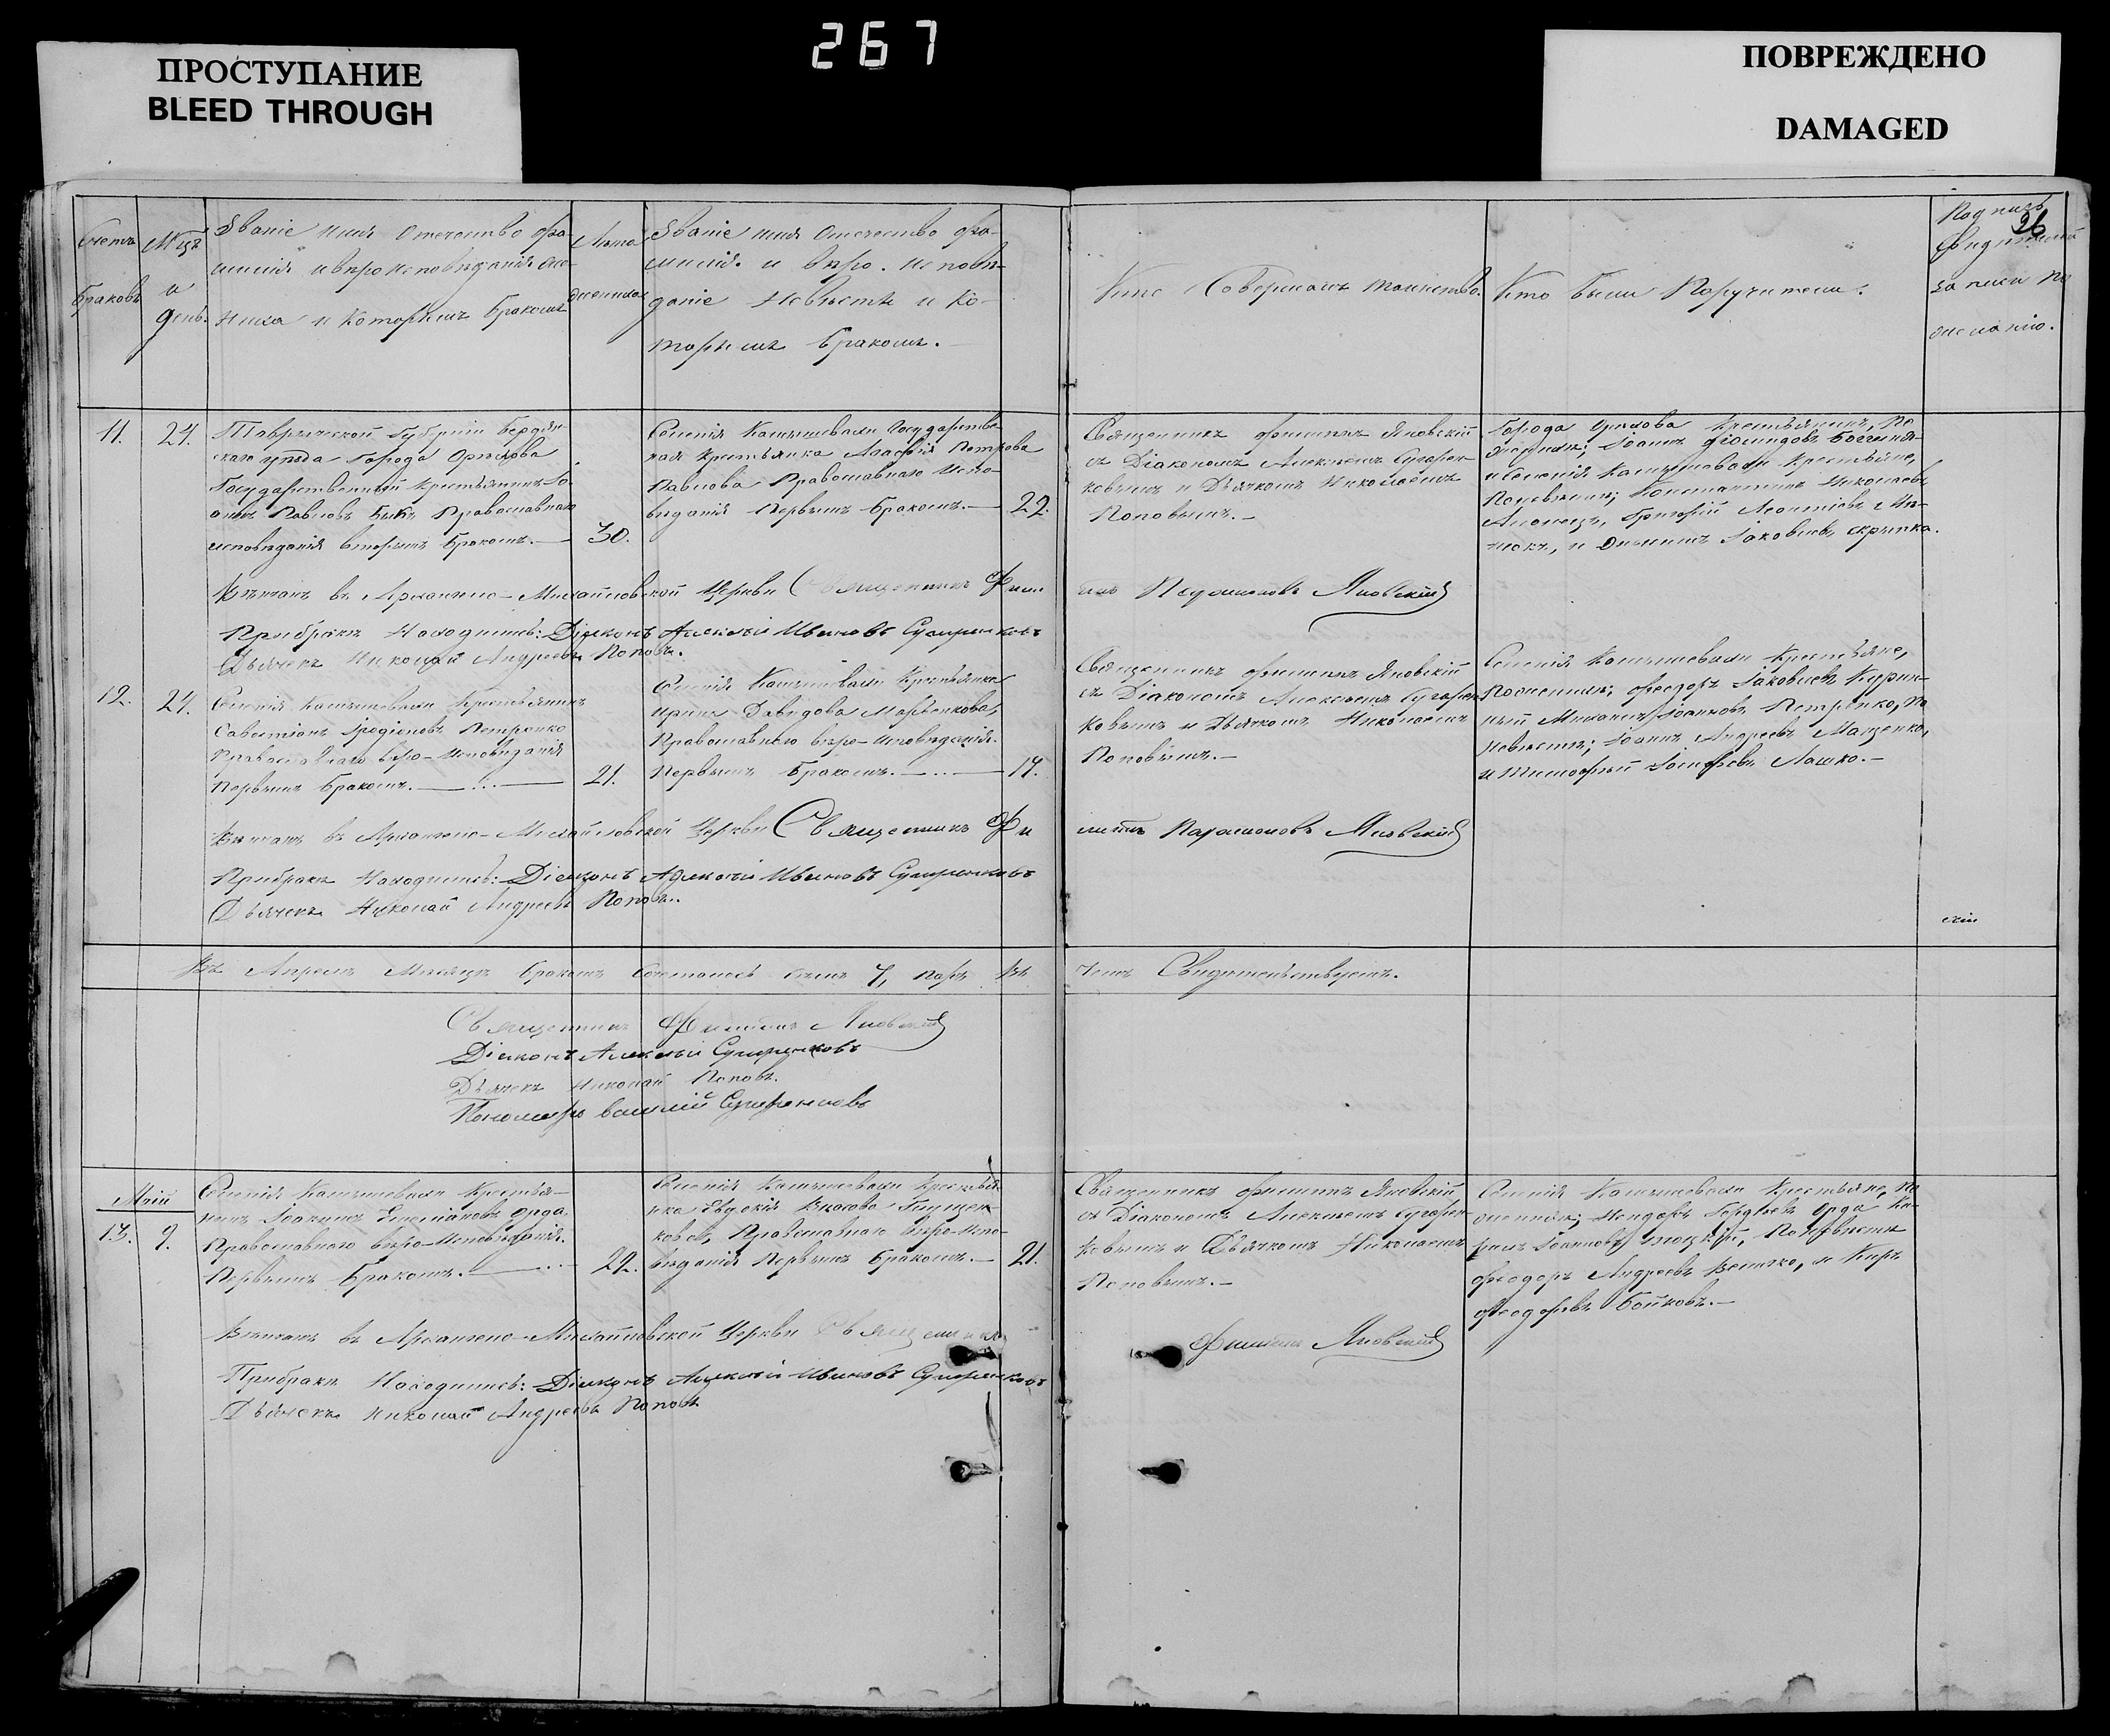 267
ПРОСТУПАНИЕ
BLEED THROUGH
ПОВРЕЖДЕНО
DAMAGED
26
Счетъ
браковъ
Мцъ
и
день.
Званіе имя Отечество фа-
милія и вѣро исповѣданія же-
ниха и которымъ бракомъ
Лѣта
жениха
Званіе имя Отечество фа-
милія. и вѣро. исповѣ-
даніе Невѣсты и ко-
торымъ бракомъ.
Кто Совершалъ таинство.
Кто были Поручители.
Подпись
Свидѣтелей
записи по
желанію.
11.
24.
Таврической Губерніи Бердян-
скаго уѣзда города Орѣхова
Государственный Крестьянинъ Іо-
аннъ Павловъ Быкъ Православнаго
исповѣданія вторымъ бракомъ.
30.
Селенія Камышевахи Государстве-
ная Крестьянка Агафія Петрова
Павлова Православнаго Испо-
вѣданія Первымъ бракомъ.
22.
Священникъ Филиппъ Яновскій
съ Діакономъ Алексѣемъ Сугорен-
ковымъ и Дьячкомъ Николаемъ
Поповымъ.
Города Орѣхова Крестьянинъ, По
женихѣ; Іоаннъ
и Селенія Камышевахи Крестьяне,
Поневѣстѣ; Константинъ Николаевъ
Григорій Леонтіевъ
и Іаковлевъ Скрыпка.
Вѣнчанъ въ Архангело-Михайловской Церкви Священникъ Фили
ппъ Яновскій
Прибракѣ Находились: Діяконъ Алексѣй Ивановъ
Дьячекъ Николай Андреевъ Поповъ.
12.
24.
Селенія Камышевахи Крестьянинъ
Савастіанъ Іродіоновъ Петренко
Православнаго вѣро-Исповѣданія
Первымъ бракомъ.
21.
Селенія Камышевахи Крестьянка
Ирина Давидова Марченкова,
Православнаго вѣро-исповѣданія.
Первымъ бракомъ.
19.
Священникъ Филиппъ Яновскій
съ Діакономъ Алексѣемъ Сугорен-
ковымъ и Дьячкомъ Николаемъ
Поповымъ.
Селенія Камышевахи Крестьяне,
Поженихѣ; Феодоръ Іаковлевъ
Михаилъ Іоанновъ Петренко, По
Невѣстѣ; Іоаннъ Андреевъ Маценко,
и Тимофей Іосифовъ Лашко.
Вѣнчанъ въ Архангело-Михайловской Церкви Священникъ Фи
липпъ Яновскій
Прибракѣ Находились: Діяконъ Алексѣй Ивановъ
Дьячекъ Николай Андреевъ Поповъ.
Въ Апрелѣ Мѣсяцѣ бракомъ Сочеталось 7, паръ Въ
чемъ Свидѣтельствуемъ.
Священникъ Филиппъ Яновскій
Діяконъ Алексѣй
Дьячекъ Николай Поповъ.
Пономарь Василій
Маій
13.
9.
Селенія Камышевахи Крестья-
нинъ Іоакимъ Емеліановъ Орда.
Православнаго вѣро-Исповѣданія.
Первымъ бракомъ.
22.
Селенія Камышевахи Крестья-
нка Евдокія Власова
кова, Православнаго вѣро-Испо-
вѣданія Первымъ бракомъ.
21.
Священникъ Филиппъ Яновскій,
съ Діакономъ Алексѣемъ Сугорен-
ковымъ и Дьячкомъ Николаемъ
Поповымъ.
Селенія Камышевахи Крестьяне, По
женихѣ; Гордѣевъ Орда
Іоанновъ Поневѣстѣ
Феодоръ Андреевъ Величко, и Киръ
Феодоровъ Бойковъ.
Вѣнчанъ въ Архангело-Михайловской Церкви Священникъ
Филиппъ Яновскій
Прибракѣ Находились: Діяконъ Алексѣй Ивановъ
Дьячекъ Николай Андреевъ Поповъ